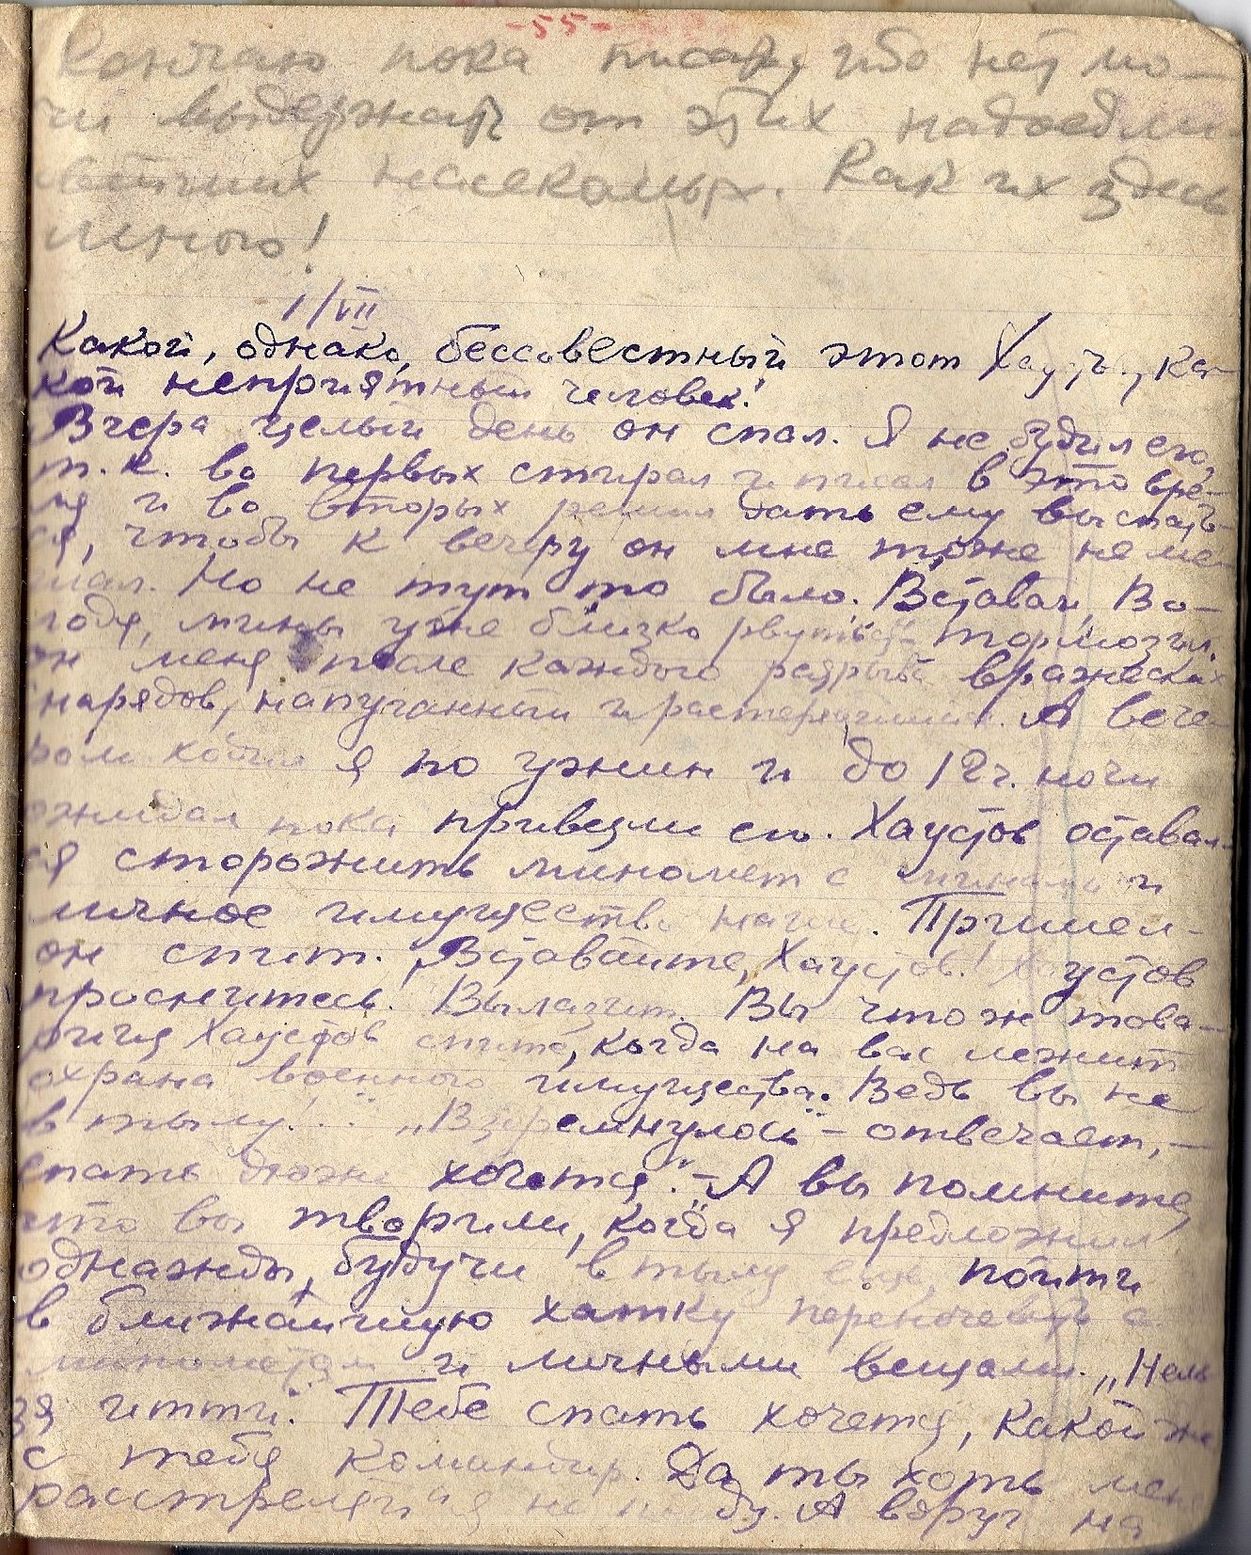 -55-
Кончаю пока писать, ибо нет мо-
чи выдержать от этих надоедли-
вейших насекомых. Как их здесь
много!
1/VII
Какой, однако, бессовестный этот Хаустов, ка-
кой неприятный человек!
Вчера целый день он спал. Я не будил его,
т.к. во первых стирал и писал в это вре-
мя и во вторых решил дать ему выспать-
ся, чтобы к вечеру он мне тоже не ме-
шал. Но не тут то было. "Вставай, Во-
лодя, мины уже близко рвуться" тормозил
он меня после каждого разрыва вражеских
снарядов, напуганный и растерявшийся. А вече-
ром ходил я по ужин и до 12 ч. ночи
ожидал пока привезли его. Хаустов оставал-
ся сторожить миномет с минами и
личное имущество наше. Пришел -
он спит. "Вставайте, Хаустов! Хаустов
проснитесь! Вылазит. Вы что ж това-
рищ Хаустов спите, когда на вас лежит
охрана военного имущества. Ведь вы не
в тылу!.." "Вздремнулось" - отвечает, -
спать дюже хочется". - "А вы помните,
что вы творили, когда я предложил
однажды, будучи в тылу еще, пойти
в ближайшую хатку переночевать с
минометом и личными вещами. "Нель-
зя итти. Тебе спать хочется, какой же
с тебя командир. Да ты хоть меня
расстреляй я не пойду. А вдруг на